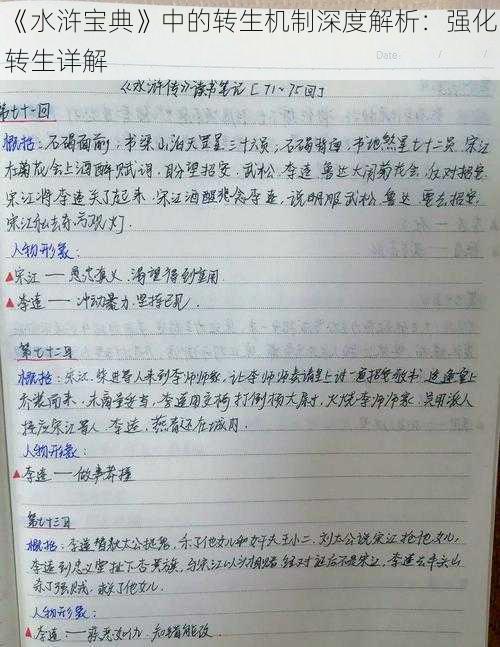 《水浒宝典》中的转生机制深度解析：强化
转生详解
Date / /
《水浒传》读书笔记［71～75回］
第七十一回
概括：石碣面前，书梁山泊天罡星三十六员；石碣背面，书地煞星七十二员。宋江
在菊花会上酒醉赋词，盼望招安，武松、李逵、鲁达大闹菊花会，反对招安。
宋江将李逵关了起来。宋江酒醒悲念李逵，说明服武松、鲁达，要去招安，
宋江私去东京观灯。
人物形象：
▲宋江——忠义，渴望得到重用
▲李逵——冲动暴力，坚持己见．
第七十二回
概括：宋江、柴进等人来到李师师家，让李师师奏请皇上讨一道招安敕书，
李逵用交椅打倒杨太尉，火烧李师师家，吴用派人
接应宋江等人，李逵、燕青还在城内．
人物形象：
▲李逵——做事莽撞
第七十三回
概括：李逵替狄太公捉鬼，杀了他女儿和奸夫王小二．刘太公说宋江抢他女儿，
李逵到忠义堂扯下杏黄旗，与宋江以头相赌，经对证后不是宋江，李逵去牛头山
杀了强贼，救了他女儿．
人物形象：
▲李逵——疾恶如仇，知错能改．